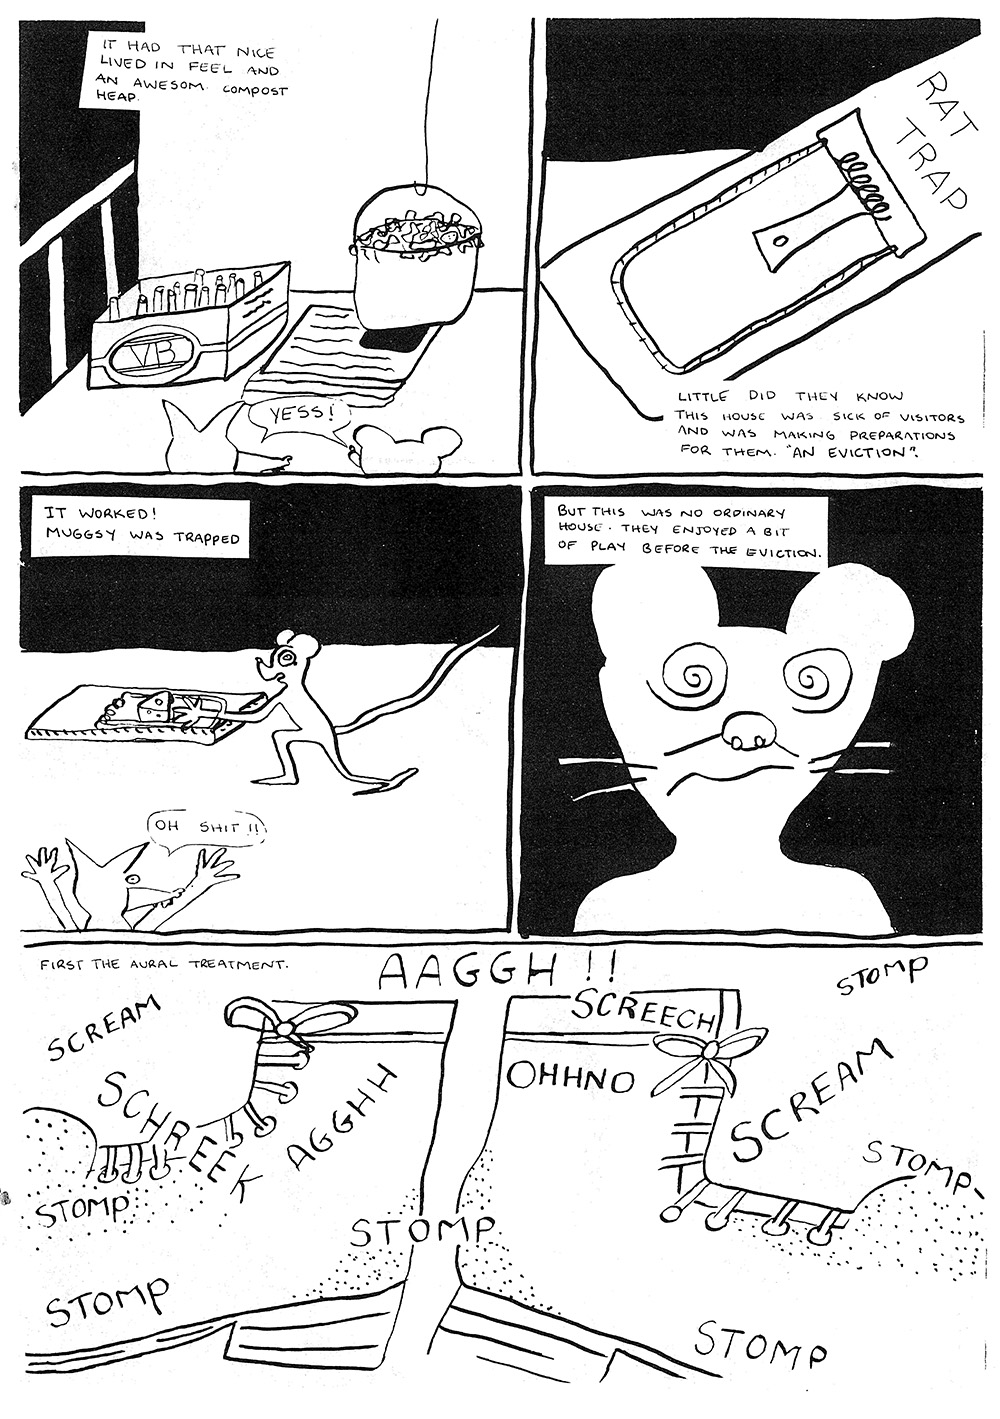 IT HAD THAT NICE
LIVED IN FEEL AND
AN AWESOM. COMPOST
HEAP.
VB
YESS!
RAT
TRAP
LITTLE DID THEY KNOW
THIS HOUSE WAS SICK OF VISITORS
AND WAS MAKING PREPARATIONS
FOR THEM. "AN EVICTION".
IT WORKED!
MUGGSY WAS TRAPPED
OH SHIT!!
BUT THIS WAS NO ORDINARY
HOUSE. THEY ENJOYED A BIT
OF PLAY BEFORE THE EVICTION.
FIRST THE AURAL TREATMENT.
AAGGH!!
STOMP
SCREAM
SCREECH
SCHREEK
AGGHH
OHHNO
SCREAM
STOMP
STOMP
STOMP
STOMP
STOMP